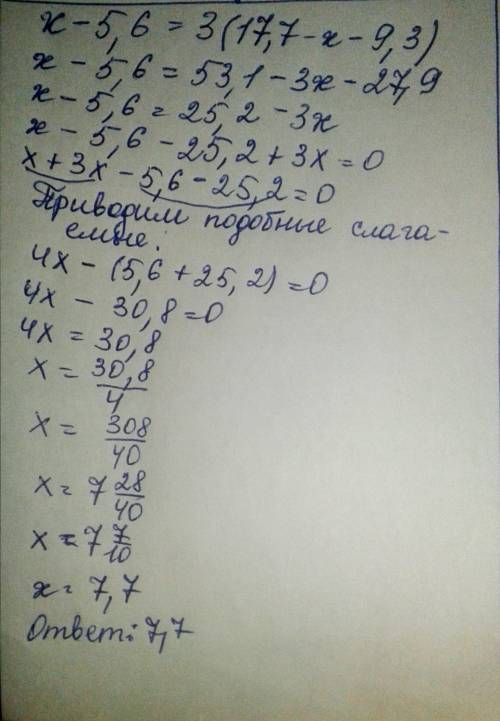 x - 5,6 = 3(17,7 - x - 9,3)
x - 5,6 = 53,1 - 3x - 27,9
x - 5,6 = 25,2 - 3x
x - 5,6 - 25,2 + 3x = 0
x + 3x - 5,6 - 25,2 = 0
Приводим подобные слага-
емые:
4x - (5,6 + 25,2) = 0
4x - 30,8 = 0
4x = 30,8
x = 30,8/4
x = 308/40
x = 7 28/40
x = 7 7/10
x = 7,7
Ответ: 7,7